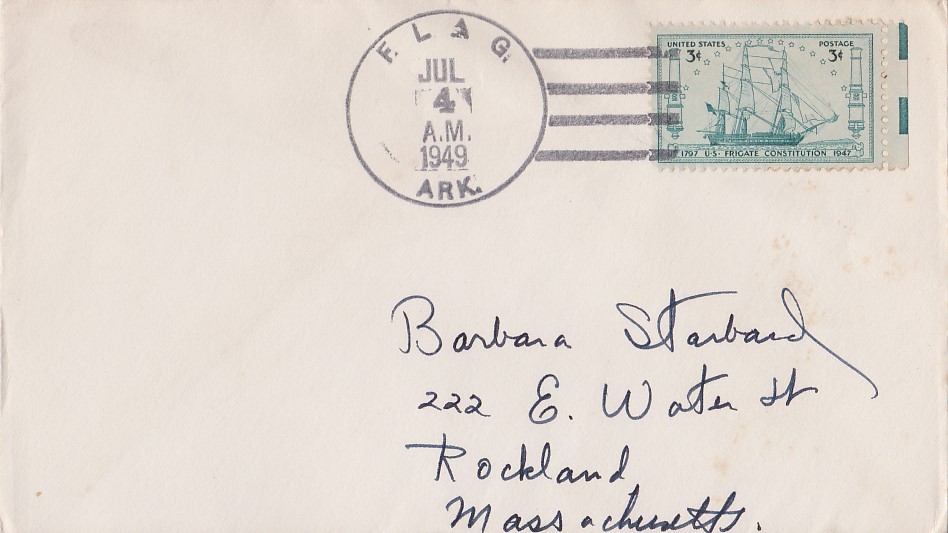 FLAG.
JUL
4
A.M.
1949
ARK.
UNITED STATES POSTAGE
3¢ 3¢
1797 U·S· FRIGATE CONSTITUTION 1947
Barbara Starbard
222 E. Water St
Rockland
Massachusetts.